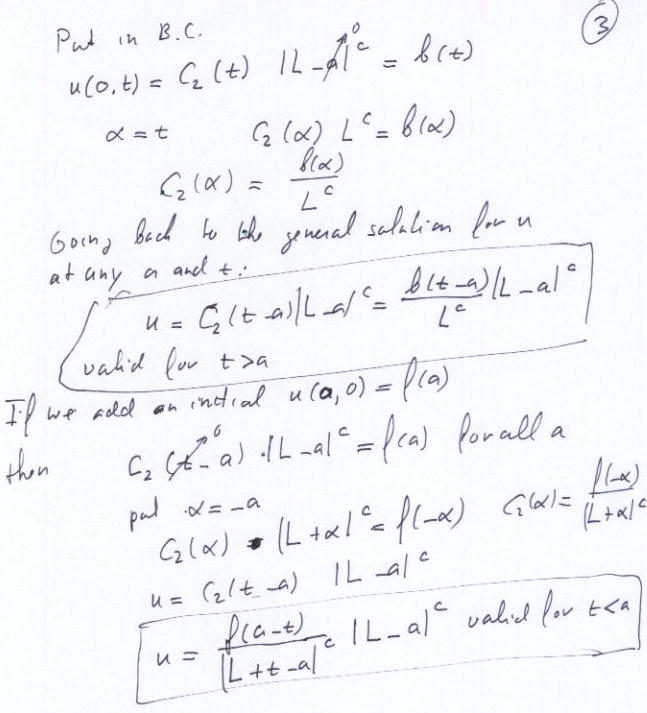 3
Put in B.C.
u(0,t) = C₂(t) |L-a|ᶜ = b(t)
0
α = t C₂(α) Lᶜ = b(α)
C₂(α) = b(α)/Lᶜ
Going back to the general solution for u
at any a and t:
u = C₂(t-a)|L-a|ᶜ = b(t-a)/Lᶜ |L-a|ᶜ
valid for t>a
If we add an initial u(a,0) = f(a)
then C₂(t-a) · |L-a|ᶜ = f(a) for all a
0
put α = -a
C₂(α) · |L+α|ᶜ = f(-α) C₂(α) = f(-α)/|L+α|ᶜ
u = C₂(t-a) |L-a|ᶜ
u = f(a-t)/|L+t-a|ᶜ |L-a|ᶜ valid for t<a